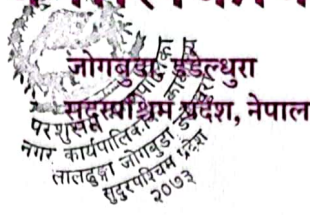 जोगबुडा, डडेल्धुरा
सुदूरपश्चिम प्रदेश, नेपाल
परशुराम
नगर कार्यपालिका
लालढुङ्गा जोगबुडा
सुदुरपश्चिम प्रदेश
२०७३